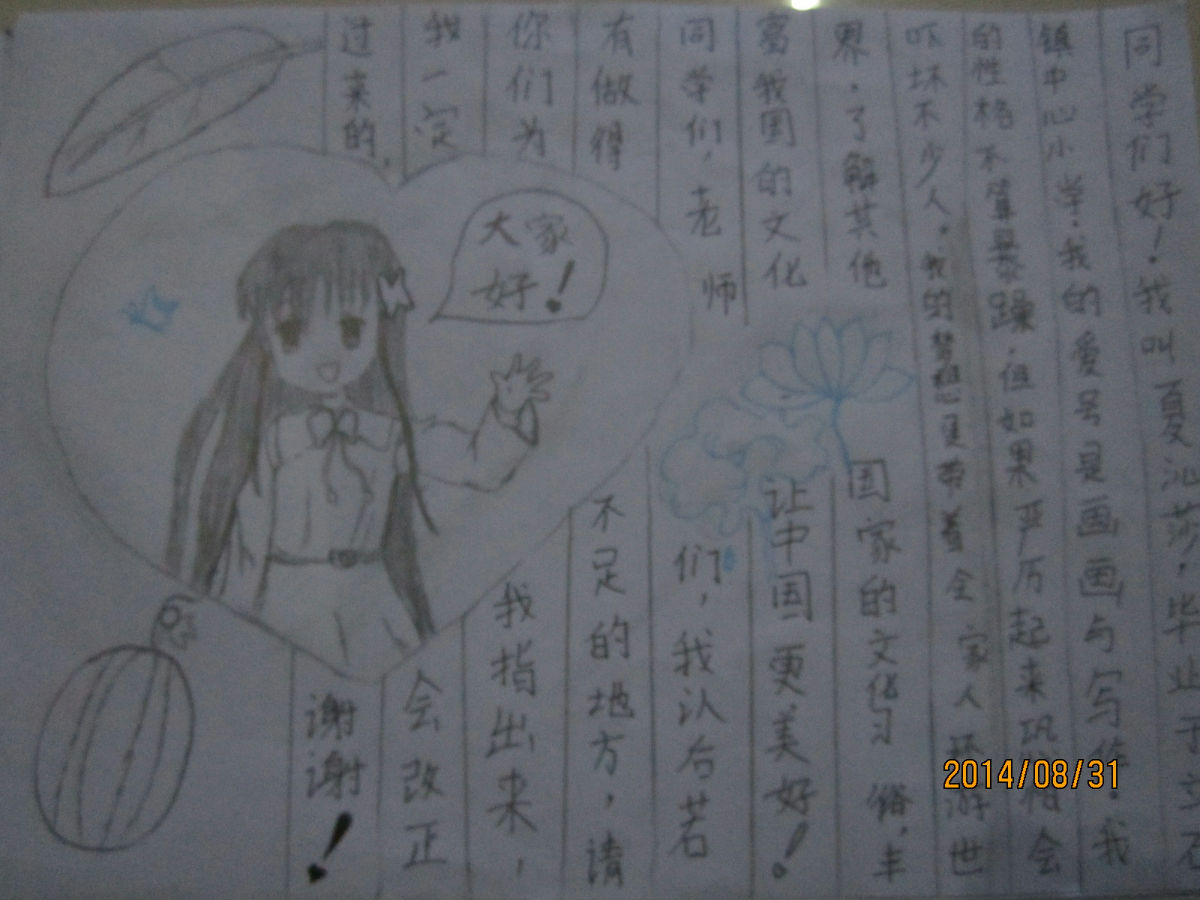 同学们好！我叫夏沁莎，毕业于立石
镇中心小学.我的爱号是画画与写作.我
的性格不算暴躁.但如果严厉起来恐怕会
吓坏不少人。我的梦想是带着全家人环游世
界.了解其他国家的文化习俗,丰
富我国的文化让中国更美好！
同学们，老师们，我认后若
有做得不足的地方，请
你们为我指出来，
我一定会改正
过来的,谢谢！
大家
好！
2014/08/31